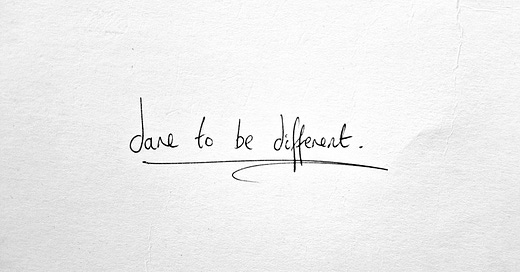 dare to be different.